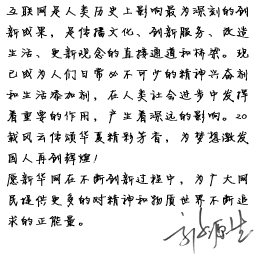 互联网是人类历史上影响最为深刻的创
新成果，是传播文化、创新服务、改造
生活、更新观念的直接通道和桥梁。现
已成为人们日常必不可少的精神兴奋剂
和生活添加剂，在人类社会进步中发挥
着重要的作用，产生着深远的影响。20
载风云传颂华夏精彩芳香，为梦想激发
国人再创辉煌！
愿新华网在不断创新过程中，为广大网
民提供更多的对精神和物质世界不断追
求的正能量。